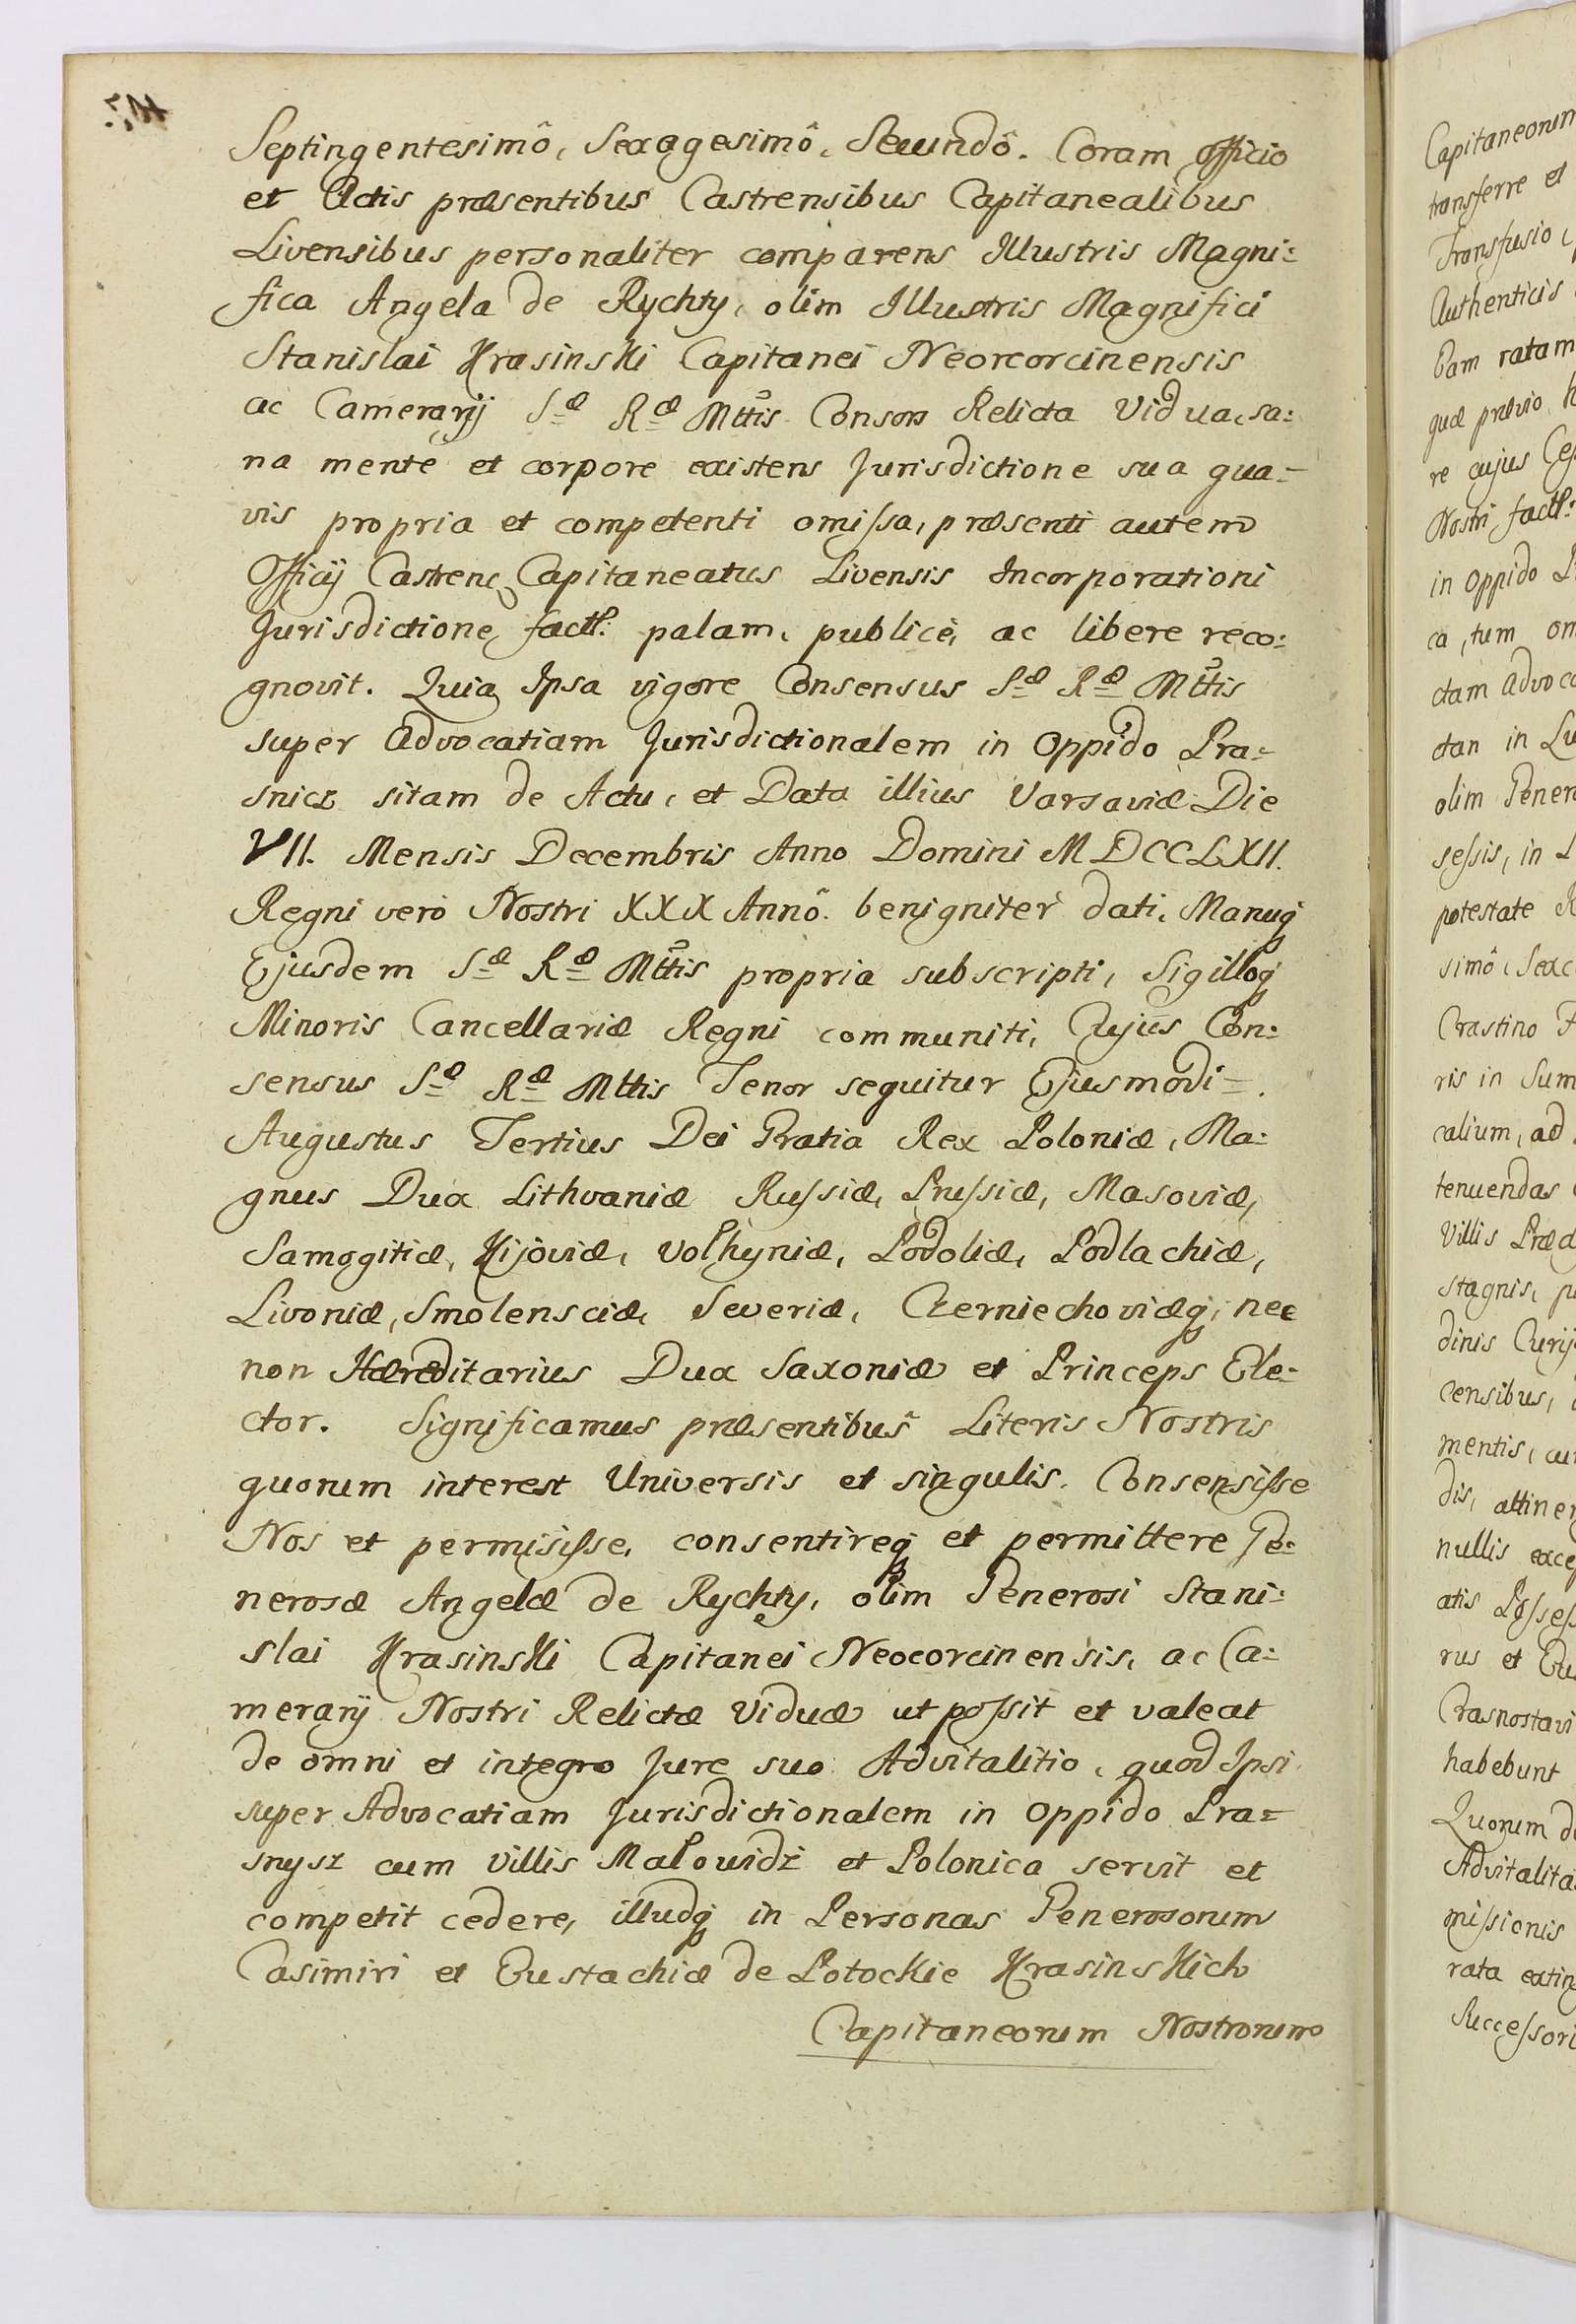 Septingentesimô, Sexagesimô, Secundô. Coram Officio
et Actis præsentibus Castrensibus Capitanealibus
Livensibus personaliter comparens Illustris Magni:
fica Angela de Rychty, olim Illustris Magnifici
Stanislai Krasinski Capitanei Neorcorcinensis
ac Camerarij Sæ Ræ Mttis Consors Relicta Vidua, sa:
na mente et corpore existens Jurisdictione sua qua=
vis propria et competenti omissa, præsenti autem
Officij Castren, Capitaneatus Livensis Incorporationi
Jurisdictione, factt. palam, publicè, ac libere reco:
gnovit. Quia Ipsa vigore Consensus Sæ Ræ Mttis
super Advocatiam Jurisdictionalem in Oppido Pra=
snicz sitam de Actu, et Data illius Varsaviæ Die
VII. Mensis Decembris Anno Domini MDCCLXII.
Regni verò Nostri XXX Annô. benigniter dati, Manuq
Ejusdem Sæ Ræ Mttis propria subscripti, Sigilloq
Minoris Cancellariæ Regni communiti, Cujus Con:
sensus Sæ Ræ Mttis Tenor sequitur Ejusmodi=.
Augustus Tertius Dei Gratia Rex Poloniæ, Ma:
gnus Dux Lithvaniæ Russiæ, Prussiæ, Masoviæ,
Samogitiæ, Kijoviæ, Volhyniæ, Podoliæ, Podlachiæ,
Livoniæ, Smolensciæ, Severiæ, Czerniechoviæq, nec
non Hæreditarius Dux Saxoniæ et Princeps Ele:
ctor. Significamus præsentibus Literis Nostris
quorum interest Universis et singulis. Consensisse
Nos et permisisse, consentireq et permittere Ge:
nerosæ Angelæ de Rychty, olim Generosi Stani:
slai Krasinski Capitanei Neocorcinensis, ac Ca:
merarij Nostri Relictæ Viduæ ut possit et valeat
de omni et integro Jure suo Advitalitio, quod Ipsi
super Advocatiam Jurisdictionalem in Oppido Pra=
snysz cum Villis Małowidz et Polonica servit et
competit cedere, illudq in Personas Generosorum
Casimiri et Eustachiæ de Potockie Krasinskich
Capitaneorum Nostrorum
Capitaneorum
transferre et
Transfusio,
Authenticis
Eam ratam
quæ prævio
re cujus
Nostri factt:
in Oppido
ca, tum
ctam
ctan in
olim Gener
sessis, in
potestate
simô, Sexc
Crastino
ris in Sum
calium, ad
tenuendas
Villis Præd
stagnis,
dinis Curij
censibus,
mentis,
dis, attinen
nullis exce
atis Posses
rus et
Crasnostavi
habebunt
Quorum
Advitalita
missionis
rata extin
Successori